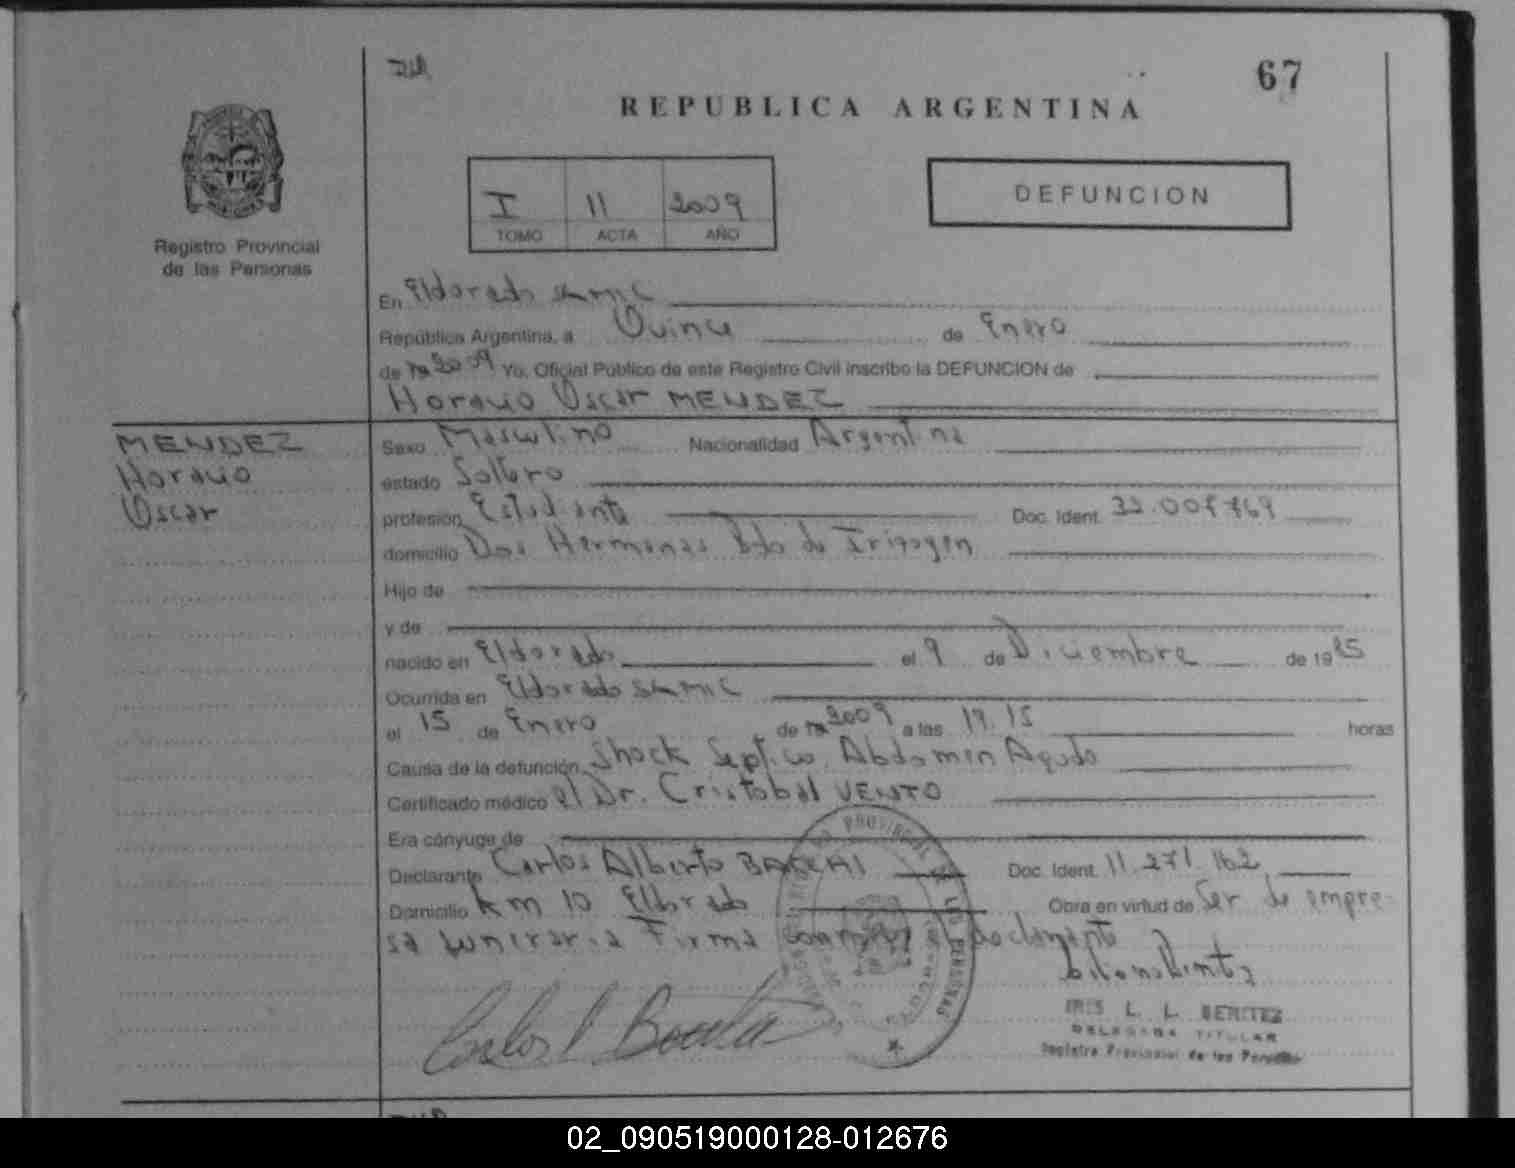 67
REPUBLICA ARGENTINA
I 11 2009
TOMO ACTA AÑO
DEFUNCION
Registro Provincial
de las Personas
En Eldorado SAMIC
República Argentina, a Quince de Enero
de 19 2009 Yo, Oficial Público de este Registro Civil inscribo la DEFUNCION de
Horacio Oscar MENDEZ
MENDEZ
Horacio
Oscar
Sexo Masculino Nacionalidad Argentina
estado Soltero
profesión Estudiante Doc. Ident.
domicilio Dos Hermanas Bdo de Irigoyen
Hijo de
y de
nacido en Eldorado el 9 de Diciembre de 1985
Ocurrida en Eldorado SAMIC
el 15 de Enero de 19 2009 a las 19.15 horas
Causa de la defunción Shock Septico. Abdomen Agudo
Certificado médico el Dr. Cristobal VENTO
Era cónyuge de
Declarante Carlos Alberto Doc. Ident. 11.271.162
Domicilio Km 10 Eldorado Obra en virtud de Ser de empre-
sa funeraria Firma conmigo el declarante
REGISTRO PROVINCIAL DE LAS PERSONAS
IRIS L. L. BENITEZ
DELEGADA TITULAR
Registro Provincial de las Personas
02_090519000128-012676